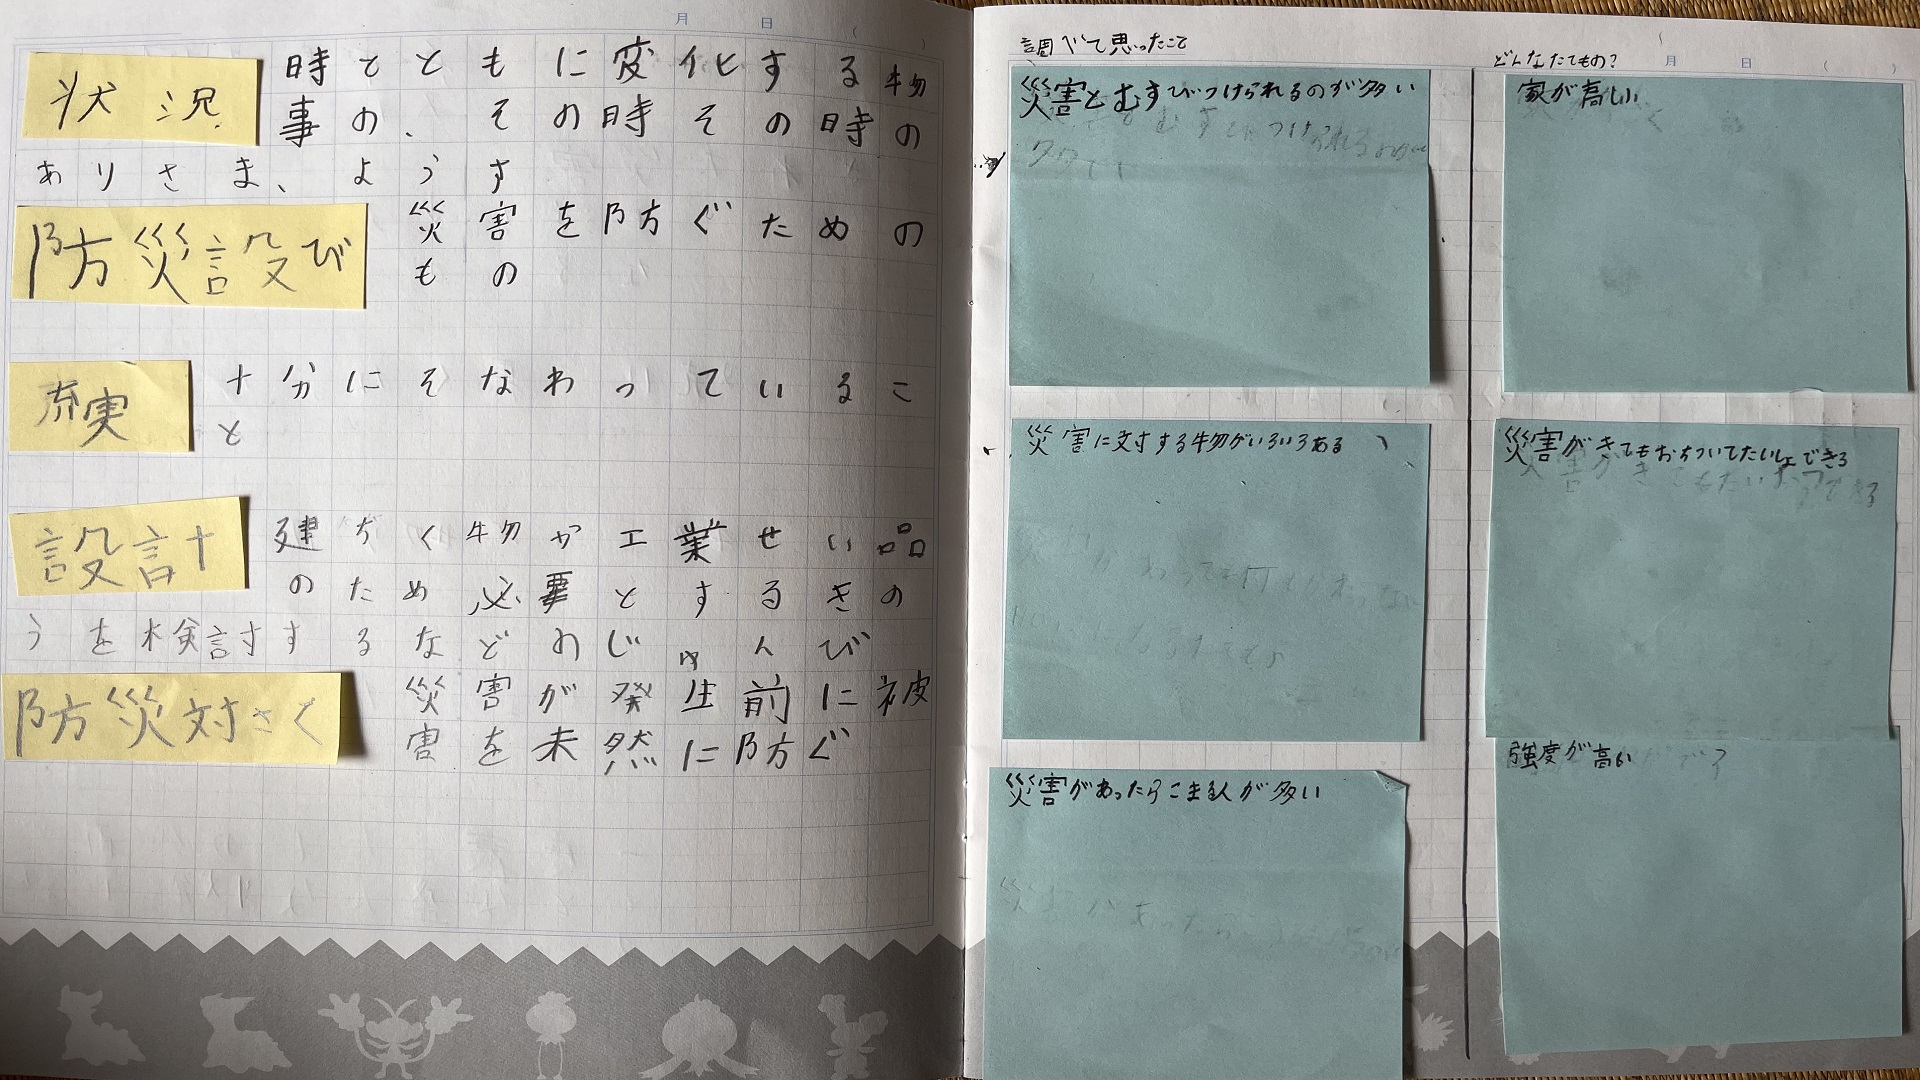 月 日
状況
時とともに変化する物
事の、その時その時の
ありさま、ようす
防災設び
災害を防ぐための
もの
充実
十分にそなわっているこ
と
設計
建ちく物か工業せい品
のため必要とするきの
うを検討するなどのじゅんび
防災対さく
災害が発生前に被
害を未然に防ぐ
調べて思ったこと
災害とむすびつけられるのが多い
災害に対する物がいろいろある
災害があったらこまる人が多い
どんなたてもの?
月 日
家が高い
災害がきてもおちついてたいしょできる
強度が高い